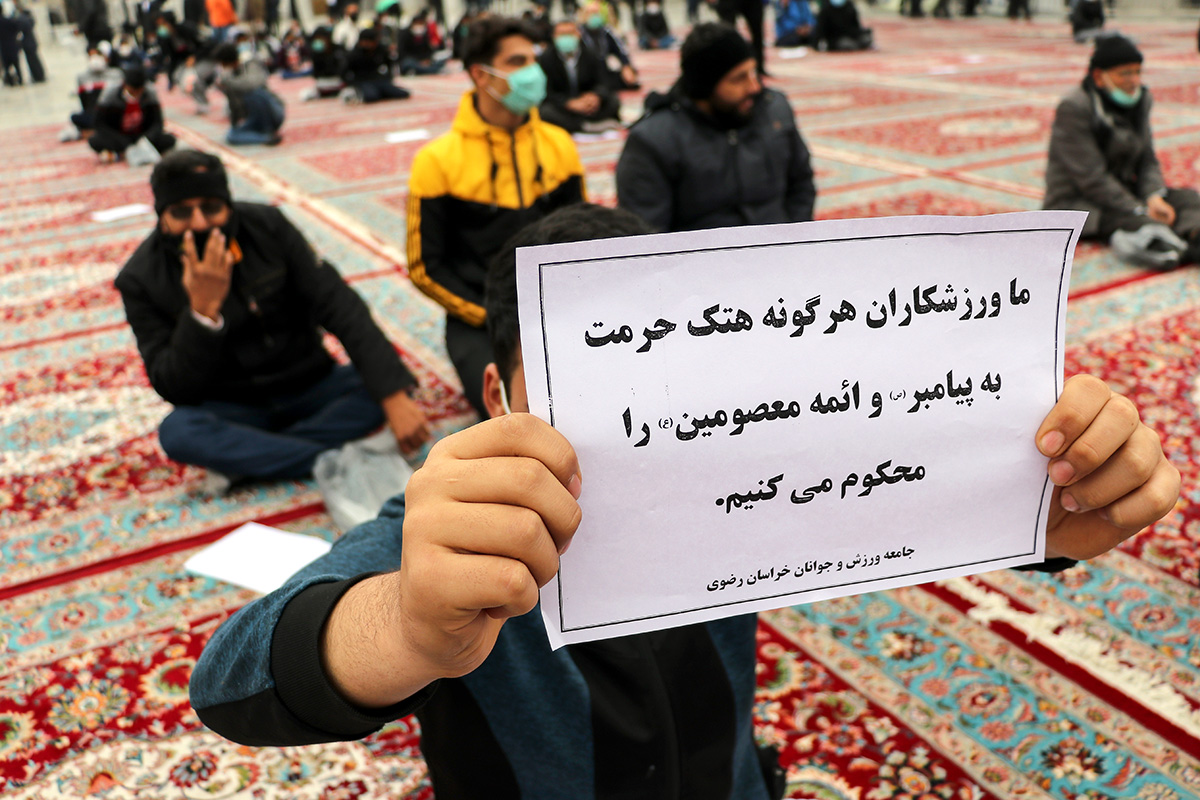 ما ورزشکاران هرگونه هتک حرمت
به پیامبر (ص) و ائمه معصومین (ع) را
محکوم می کنیم.
جامعه ورزش و جوانان خراسان رضوی